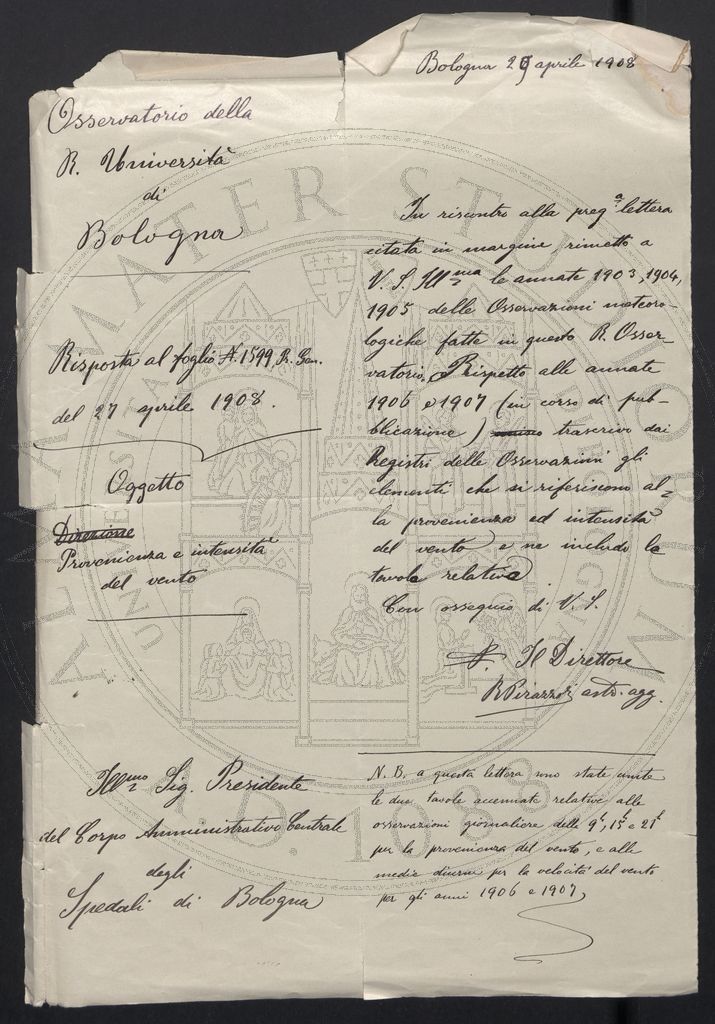 Bologna 29 aprile 1908
Osservatorio della
R. Università
di
Bologna
Risposta al foglio N. 1599, R. Gen.
del 27 aprile 1908.
Oggetto
Direzione
Provenienza e intensità
del vento
In riscontro alla preg.a lettera
citata in margine rimetto a
V. S. Ill.ma le annate 1903, 1904,
1905 delle Osservazioni meteoro-
logiche fatte in questo R. Osser-
vatorio. Rispetto alle annate
1906 e 1907 (in corso di pub-
blicazione) trascrivo dai
Registri delle Osservazioni gli
elementi che si riferiscono al-
la provenienza ed intensità
del vento, e ne includo la
tavola relativa.
Con ossequio di V. S.
p. Il Direttore
R Pirazzoli astr. agg.
Ill.mo Sig. Presidente
del Corpo Amministrativo Centrale
degli
Spedali di Bologna
N. B. a questa lettera sono state unite
le due tavole accennate relative alle
osservazioni giornaliere delle 9h, 15h e 21h
per la provenienza del vento, e alle
medie diurne per la velocità del vento
per gli anni 1906 e 1907
ALMA MATER STUDIORUM
A.D. 1088